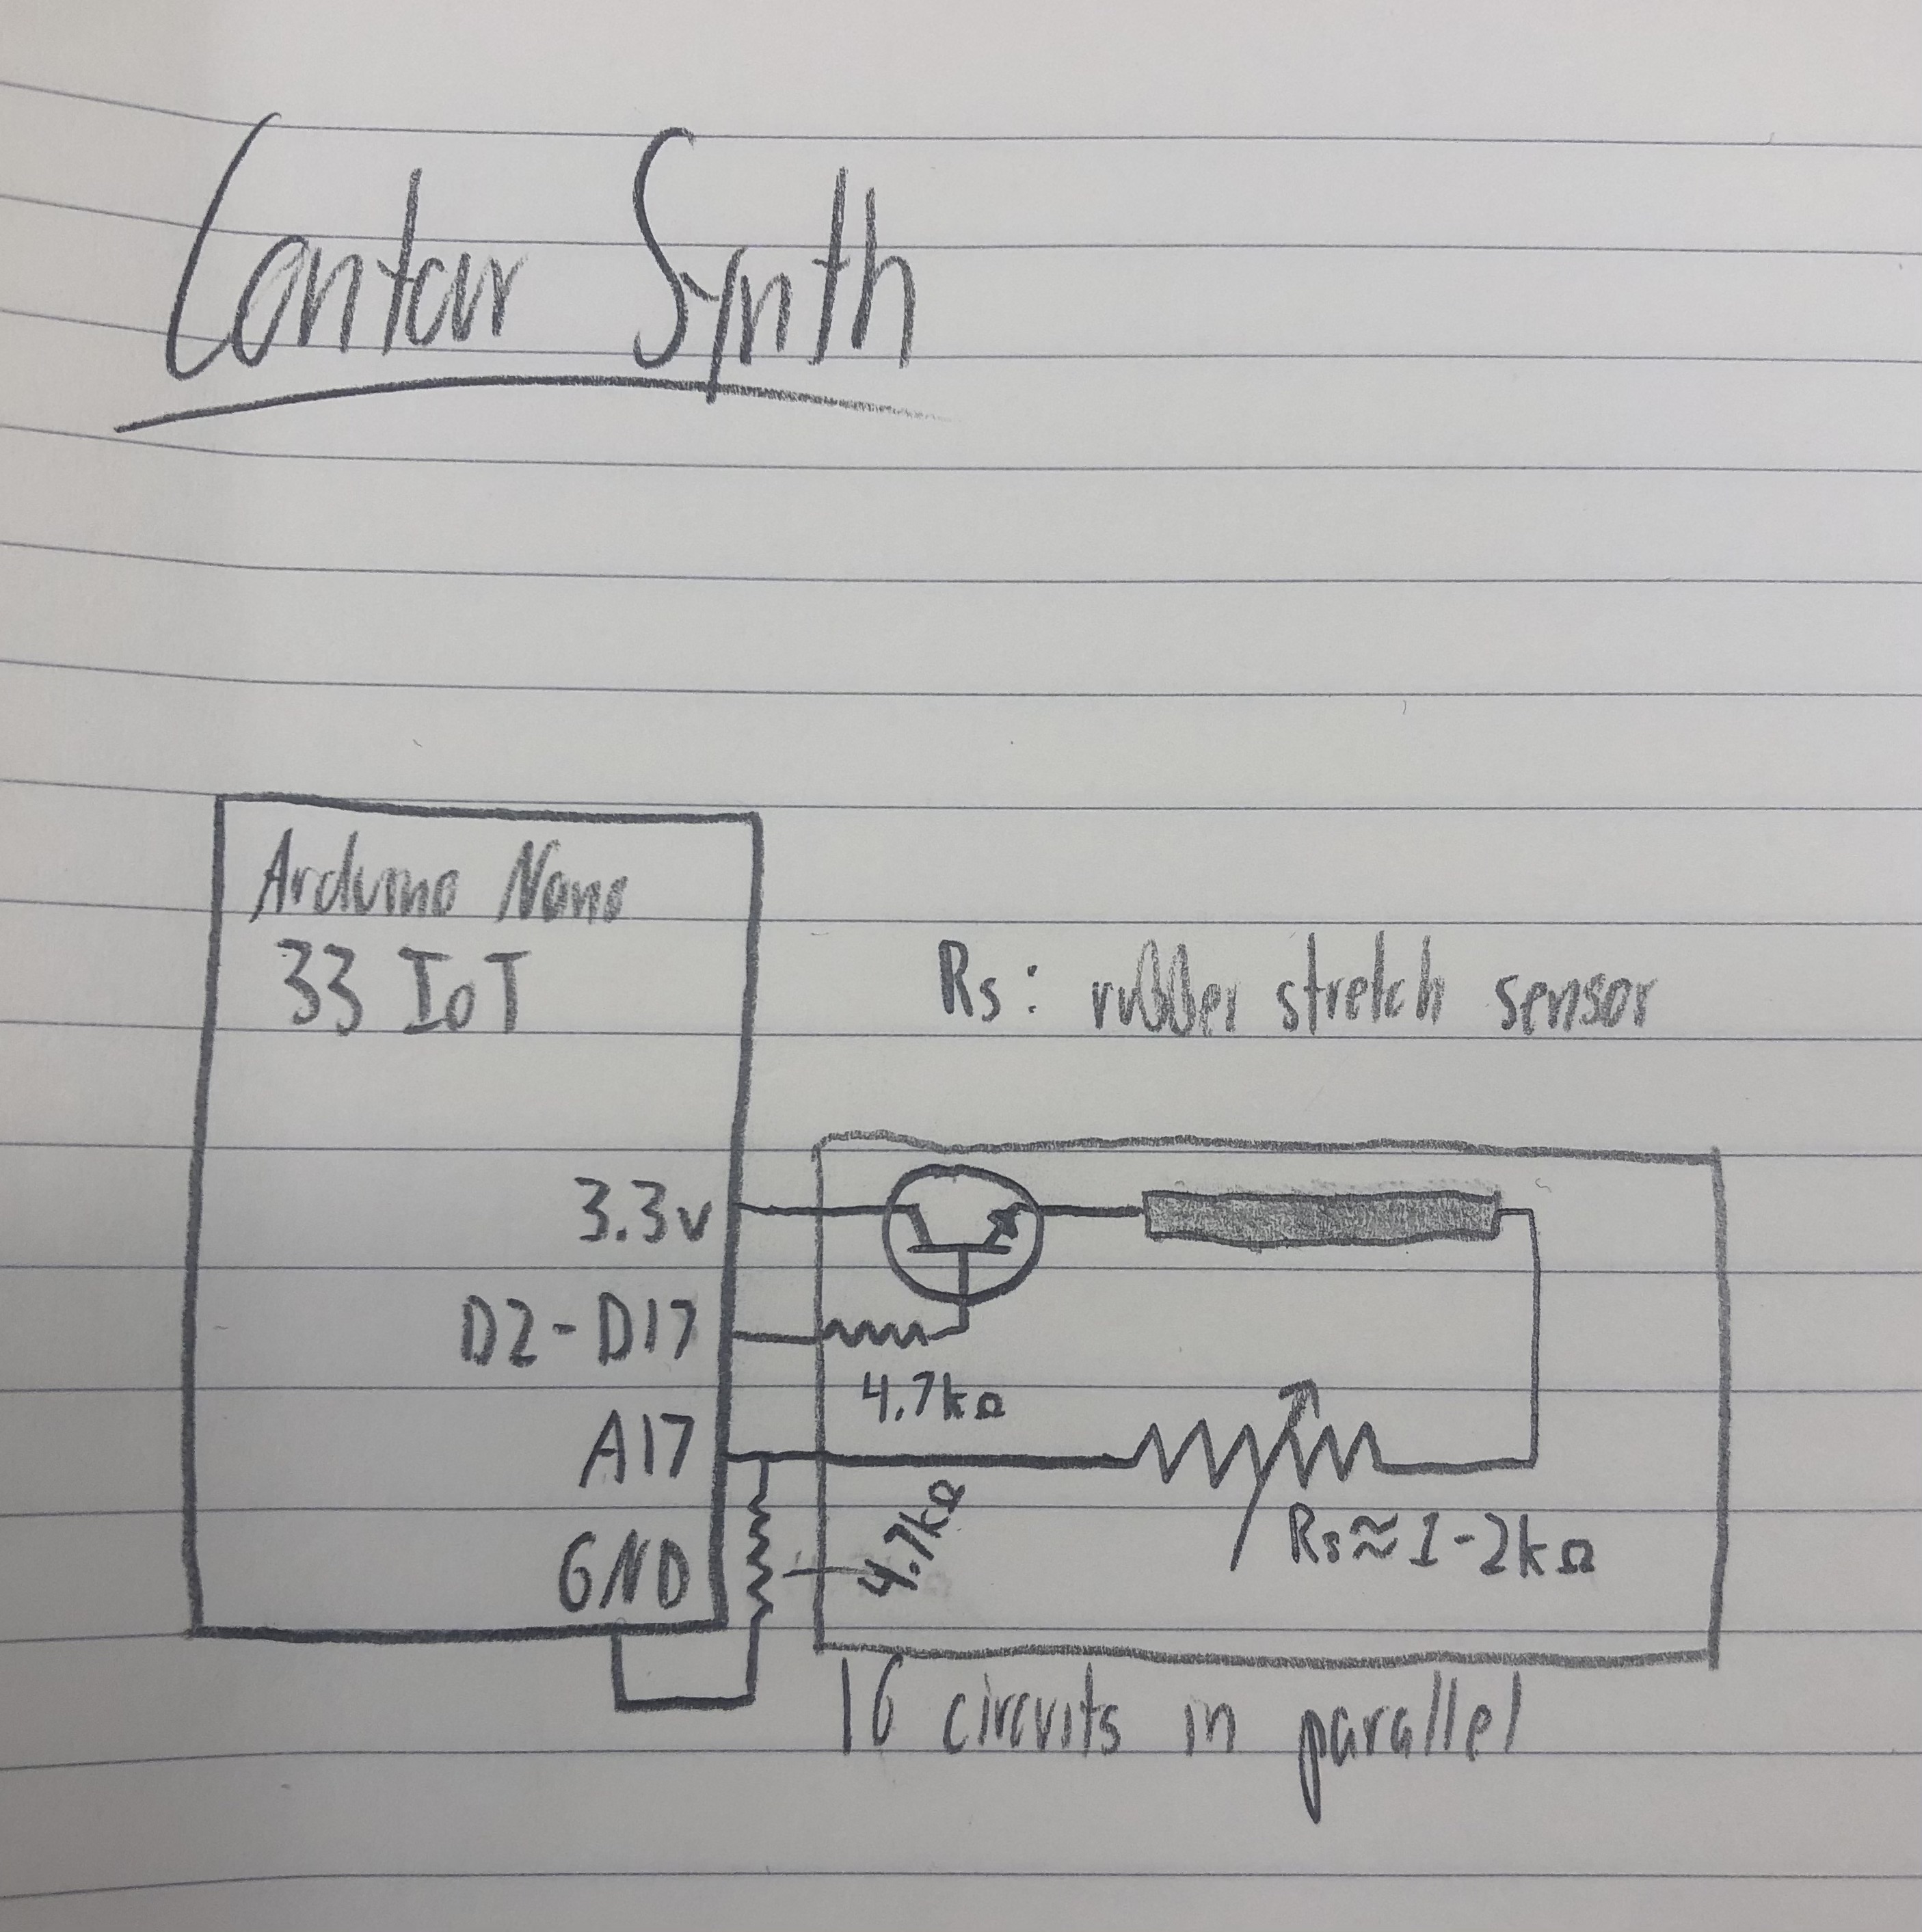 Contour Synth
Arduino Nano
33 IoT
Rs: rubber stretch sensor
3.3v
D2-D17
4.7kΩ
A17
4.7kΩ
Rs≈1-2kΩ
GND
16 circuits in parallel